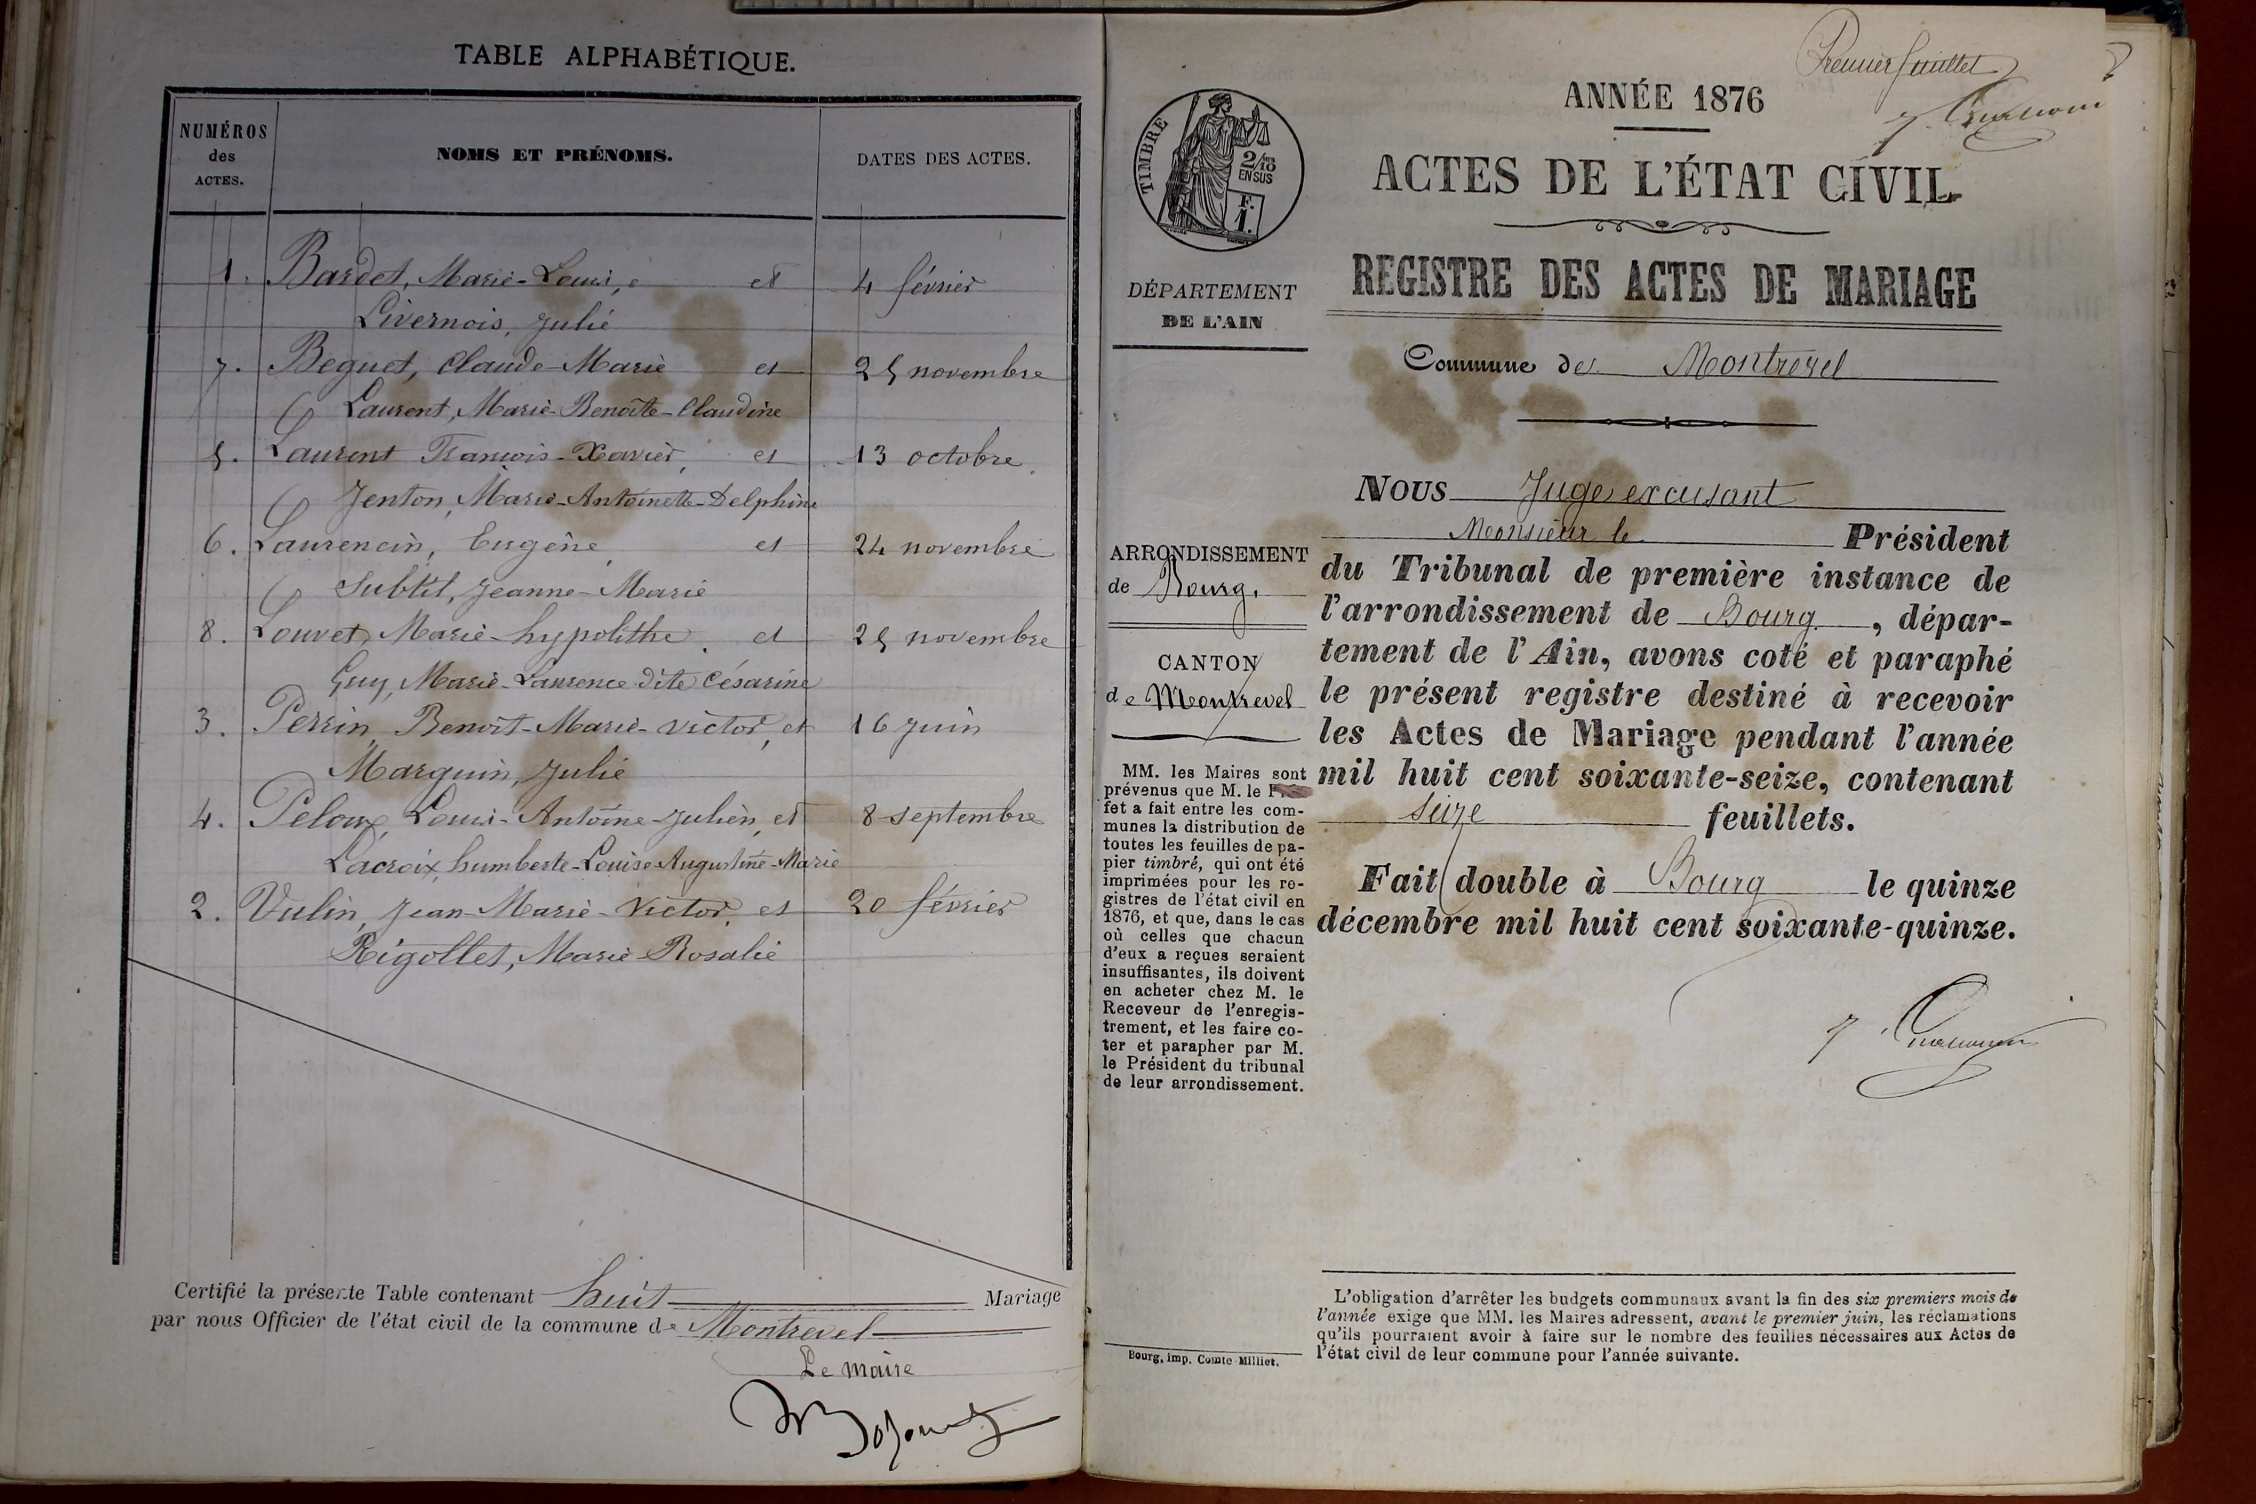 TABLE ALPHABÉTIQUE.
NUMÉROS
des
ACTES.
NOMS ET PRÉNOMS.
DATES DES ACTES.
1. Bardet, Marie-Louis, et 4 février
Livernois, Julie
7. Beguet, Claude-Marie et 25 novembre
Laurent, Marie-Benoîte-Claudine
5. Laurent François-Xavier, et 13 octobre.
Jenton, Marie-Antoinette-Delphine
6. Laurencin, Eugène et 24 novembre
Subtil, Jeanne-Marie
8. Louvet, Marie-hypolithe. et 25 novembre
Guy, Marie-Laurence dite Césarine
3. Perrin, Benoît-Marie-victor, et 16 juin
Marguin, Julie
4. Peloux, Louis-Antoine-Julien, et 8 septembre
Lacroix, humberte-Louise-Augustine-Marie
2. Vulin, Jean-Marie-Victor, et 20 février
Rigollet, Marie-Rosalie
Certifié la présente Table contenant huit Mariage
par nous Officier de l'état civil de la commune de Montrevel
Le maire
Premier feuillet
ANNÉE 1876
ACTES DE L'ÉTAT CIVIL
REGISTRE DES ACTES DE MARIAGE
TIMBRE
2/10
EN SUS
F.
1.
DÉPARTEMENT
DE L'AIN
Commune de Montrevel
NOUS Juge excusant
Monsieur le Président
du Tribunal de première instance de
l'arrondissement de Bourg, dépar-
tement de l'Ain, avons coté et paraphé
le présent registre destiné à recevoir
les Actes de Mariage pendant l'année
mil huit cent soixante-seize, contenant
seize feuillets.
Fait double à Bourg le quinze
décembre mil huit cent soixante-quinze.
ARRONDISSEMENT
de Bourg.
CANTON
de Montrevel
MM. les Maires sont
prévenus que M. le
fet a fait entre les com-
munes la distribution de
toutes les feuilles de pa-
pier timbré, qui ont été
imprimées pour les re-
gistres de l'état civil en
1876, et que, dans le cas
où celles que chacun
d'eux a reçues seraient
insuffisantes, ils doivent
en acheter chez M. le
Receveur de l'enregis-
trement, et les faire co-
ter et parapher par M.
le Président du tribunal
de leur arrondissement.
Bourg, imp. Comte-Milliet.
L'obligation d'arrêter les budgets communaux avant la fin des six premiers mois de
l'année exige que MM. les Maires adressent, avant le premier juin, les réclamations
qu'ils pourraient avoir à faire sur le nombre des feuilles nécessaires aux Actes de
l'état civil de leur commune pour l'année suivante.